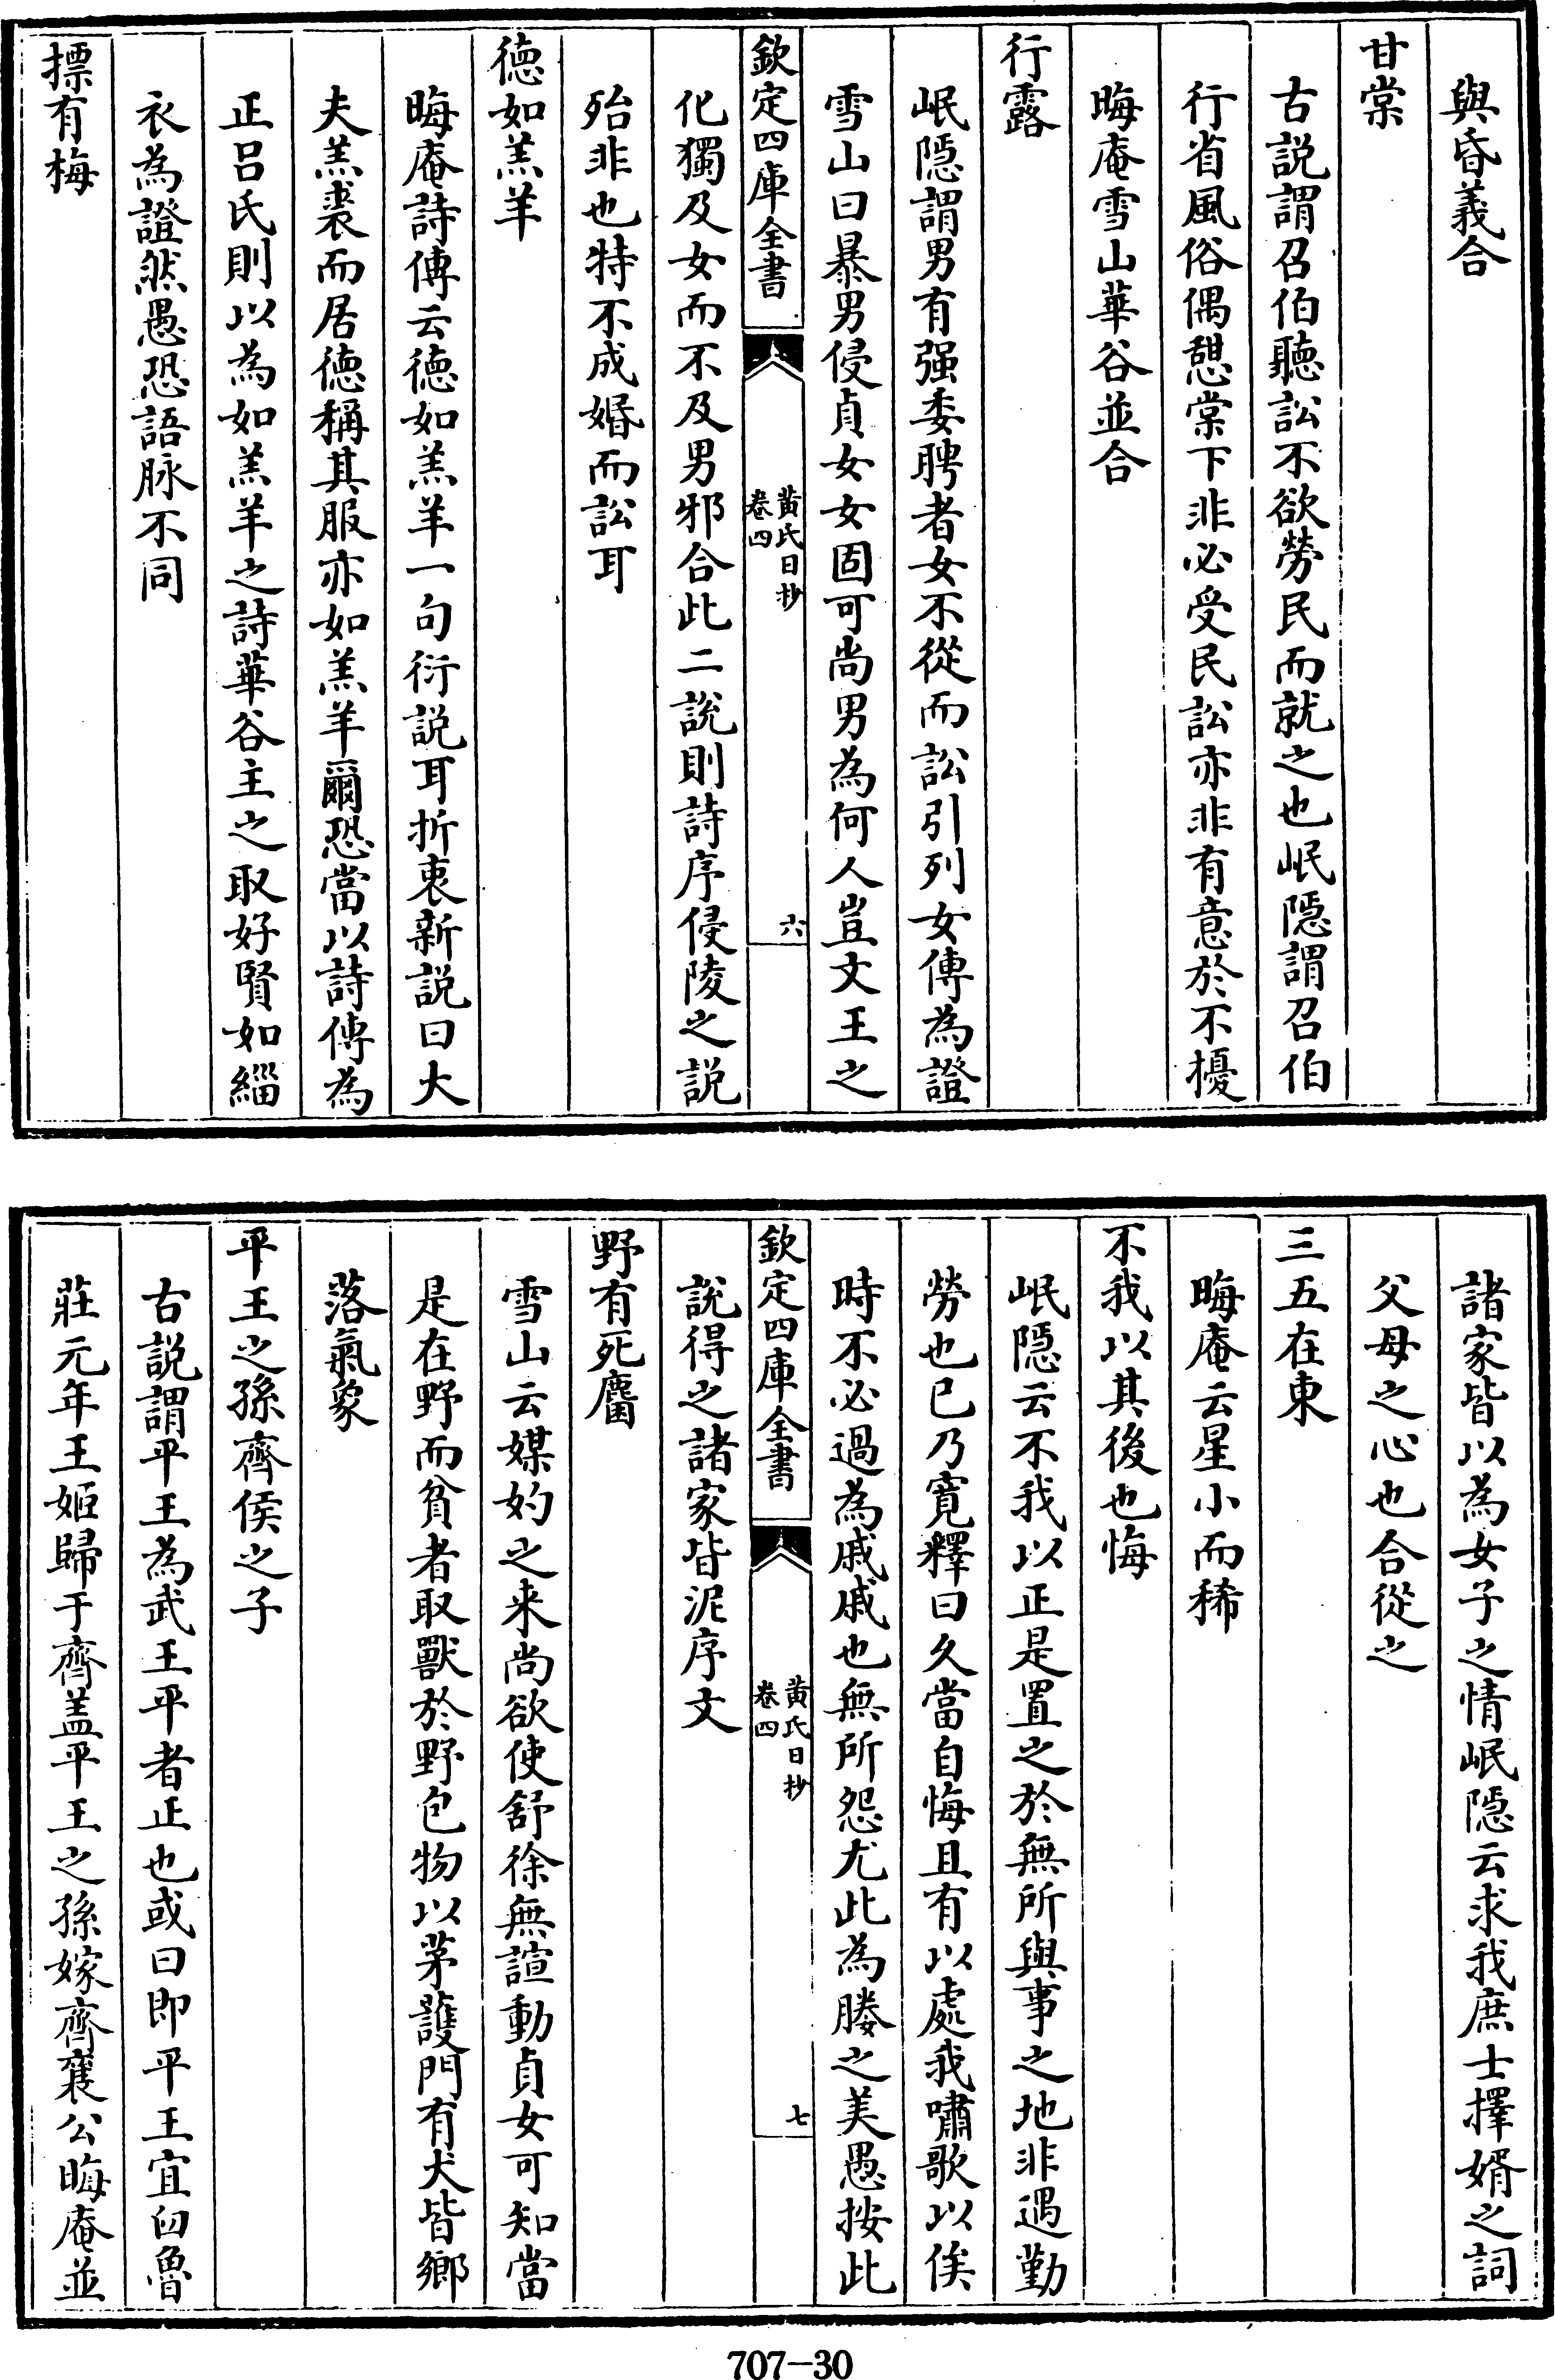 與昏義合
甘棠
古説謂召伯聽訟不欲勞民而就之也岷隱謂召伯
行省風俗偶憇棠下非必受民訟亦非有意於不擾
晦庵雪山華谷並合
行露
岷隱謂男有强委聘者女不從而訟引列女傳為證
雪山曰暴男侵貞女女固可尚男為何人豈文王之
欽定四庫全書
黄氏日抄
卷四
六
化獨及女而不及男邪合此二說則詩序侵陵之説
殆非也特不成婚而訟耳
德如羔羊
晦庵詩傳云德如羔羊一句衍説耳折衷新説曰大
夫羔裘而居德稱其服亦如羔羊爾恐當以詩傳為
正吕氏則以為如羔羊之詩華谷主之取好賢如緇
衣為證然愚恐語脉不同
摽有梅
諸家皆以為女子之情岷隱云求我庶士擇婿之詞
父母之心也合從之
三五在東
晦庵云星小而稀
不我以其後也悔
岷隱云不我以正是置之於無所與事之地非遇勤
勞也已乃寛釋曰久當自悔且有以處我嘯歌以俟
時不必過為戚戚也無所怨尤此為媵之美愚按此
欽定四庫全書
黄氏日抄
卷四
七
說得之諸家皆泥序文
野有死麕
雪山云媒妁之来尚欲使舒徐無諠動貞女可知當
是在野而貧者取獸於野包物以茅護門有犬皆鄉
落氣象
平王之孫齊侯之子
古説謂平王為武王平者正也或曰即平王宜臼魯
莊元年王姬歸于齊盖平王之孫嫁齊襄公晦庵並
707-30